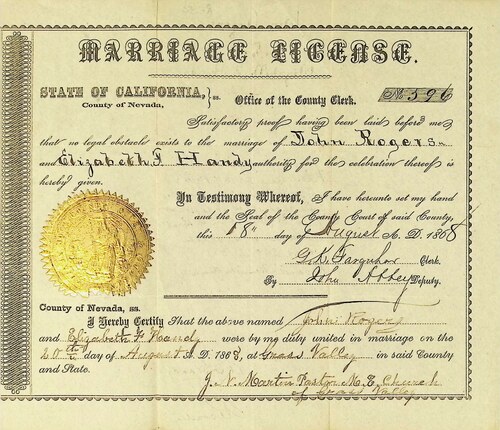 MARRIAGE LICENSE.
STATE OF CALIFORNIA, } ss.
County of Nevada,
Office of the County Clerk.
No 596
Satisfactory proof having been laid before me
that no legal obstacle exists to the marriage of John Rogers
and Elizabeth F Handy authority for the celebration thereof is
hereby given.
In Testimony Whereof, I have hereunto set my hand
and the Seal of the County Court of said County,
this 18th day of August A. D. 1868
G.K. Farquhar Clerk.
By John Abbey Deputy.
County of Nevada, ss.
I Hereby Certify That the above named John Rogers
and Elizabeth F Handy were by me duly united in marriage on the
20th day of August A. D. 1868, at Grass Valley in said County
and State.
J. N. Martin Pastor M. E. Church
of Grass Valley